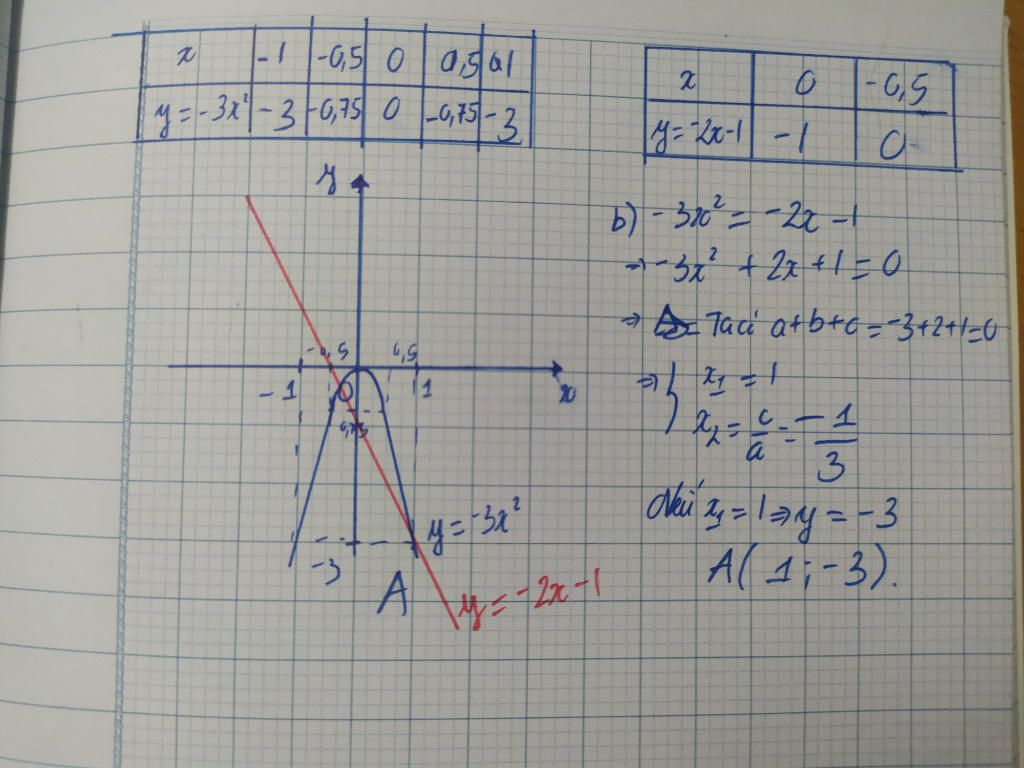 x -1 -0,5 0 0,5 1
y = -3x² -3 -0,75 0 -0,75 -3
x 0 -0,5
y = -2x-1 -1 0
y
-0,5 0,5
-1 1 x
O
0,75
-3
A
y = -3x²
y = -2x-1
b) -3x² = -2x-1
→ -3x² + 2x + 1 = 0
→ Ta có a+b+c = -3+2+1=0
⇒ { x₁ = 1
x₂ = c/a = -1/3
Nếu x₁ = 1 ⇒ y = -3
A( 1 ; -3).